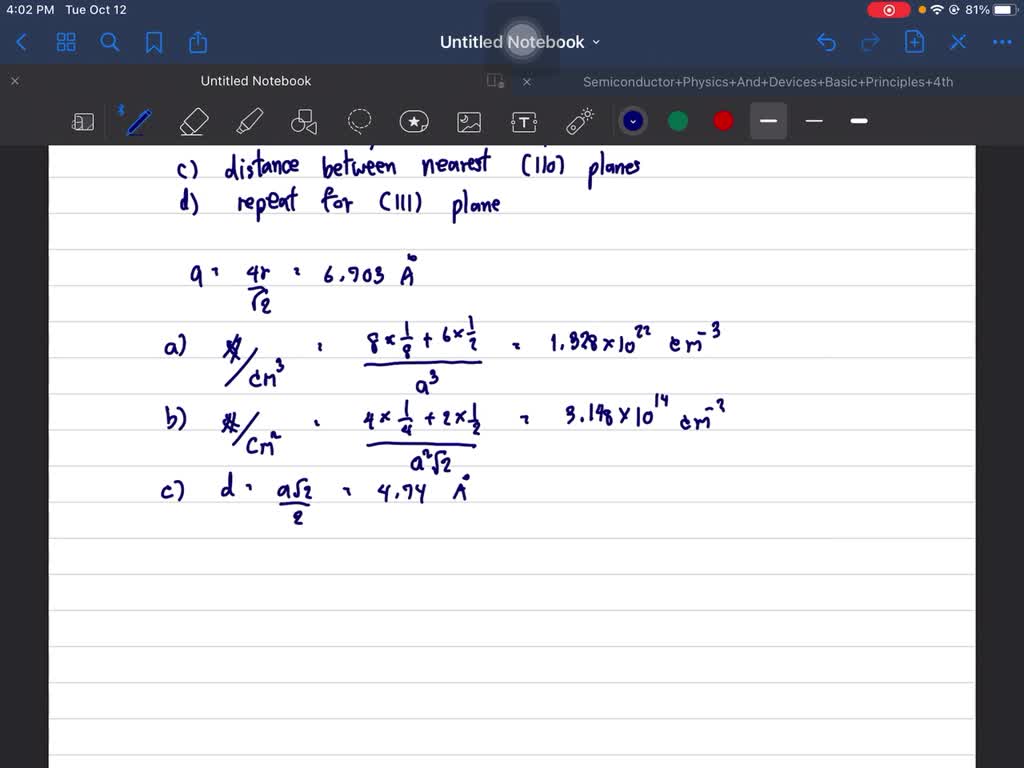 4:02 PM Tue Oct 12 81%
Untitled Notebook
Untitled Notebook
Semiconductor+Physics+And+Devices+Basic+Principles+4th
c) distance between nearest (110) planes
d) repeat for (111) plane
a = 4r/√2 = 6.703 Å
a) #/cm³ = (8×1/8 + 6×1/2)/a³ = 1.328×10²² cm⁻³
b) #/cm² = (4×1/4 + 2×1/2)/a²√2 = 3.148×10¹⁴ cm⁻²
c) d = a√2/2 = 4.74 Å